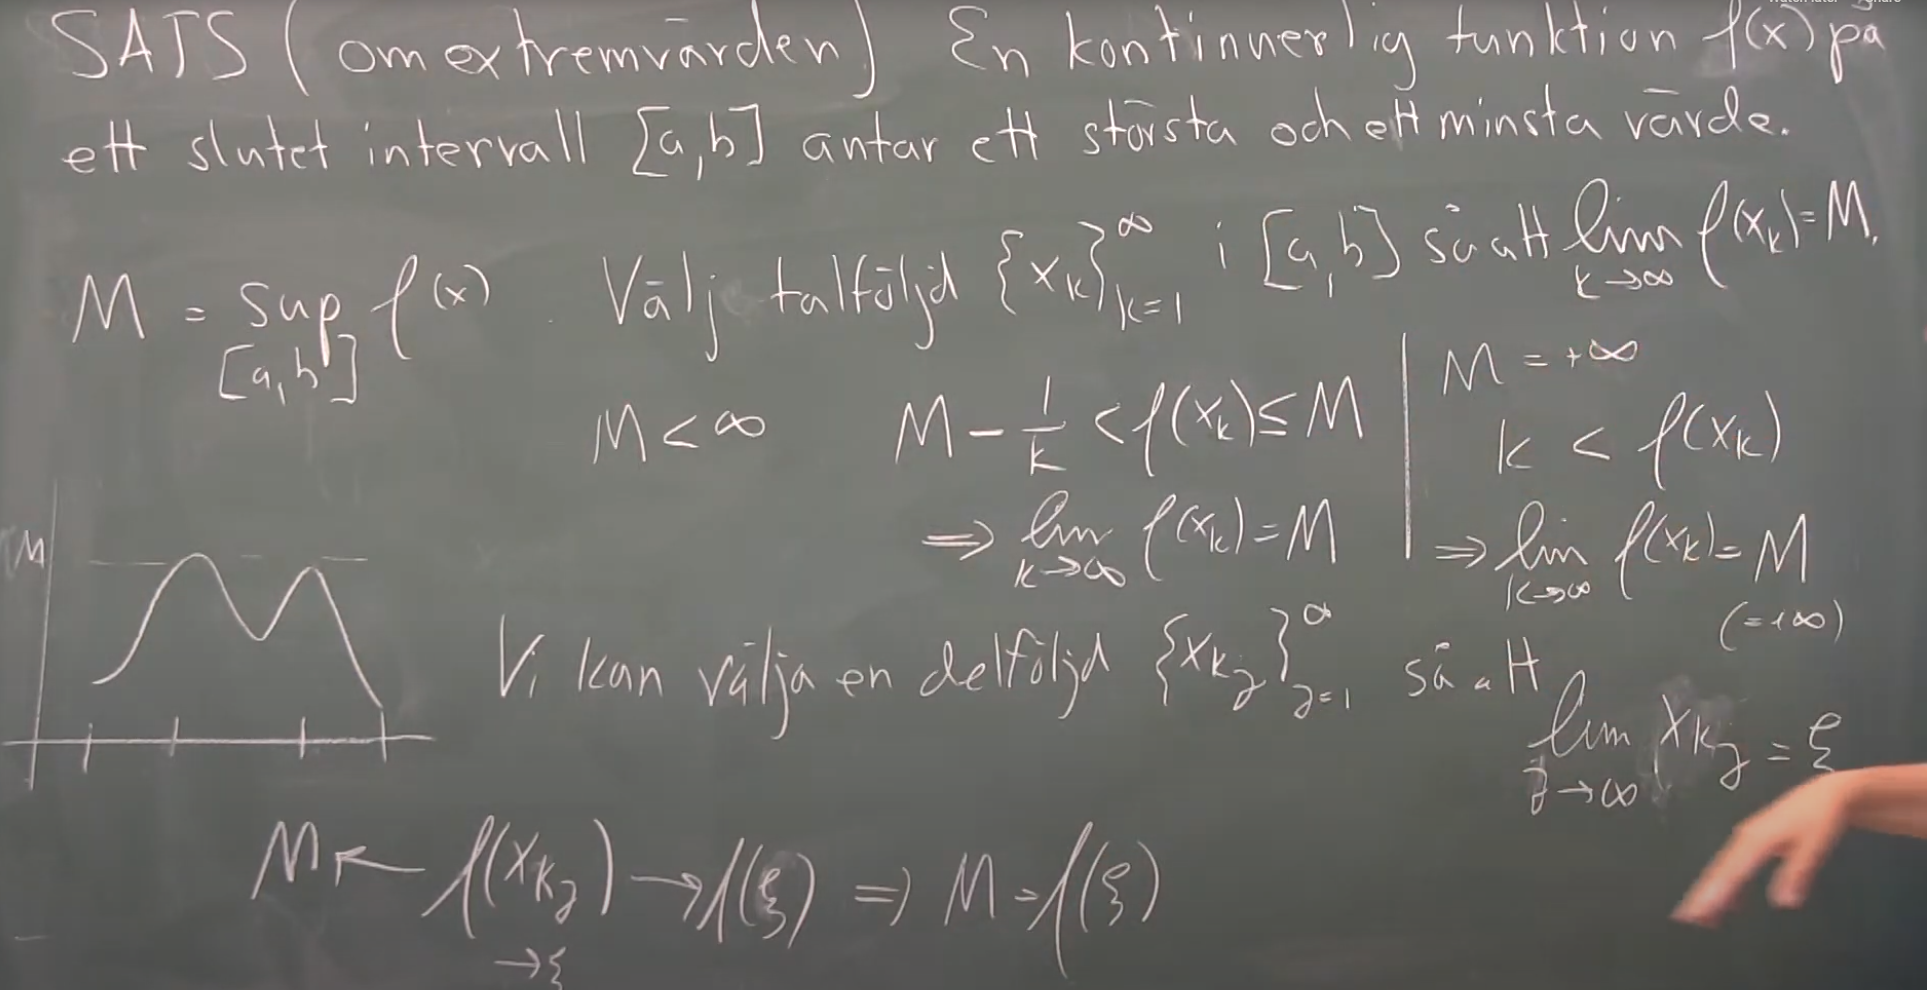 SATS (om extremvärden) En kontinuerlig funktion f(x) på
ett slutet intervall [a,b] antar ett största och ett minsta värde.
M = sup f(x). Välj talföljd {x_k}_{k=1}^∞ i [a,b] så att lim f(x_k) = M.
[a,b] k→∞
M < ∞ M - 1/k < f(x_k) ≤ M
⇒ lim f(x_k) = M
k→∞
M = +∞
k < f(x_k)
⇒ lim f(x_k) = M
k→∞ (=+∞)
M
Vi kan välja en delföljd {x_{k_j}}_{j=1}^∞ så att
lim x_{k_j} = ξ
j→∞
M ← f(x_{k_j}) → f(ξ) ⇒ M = f(ξ)
→ξ